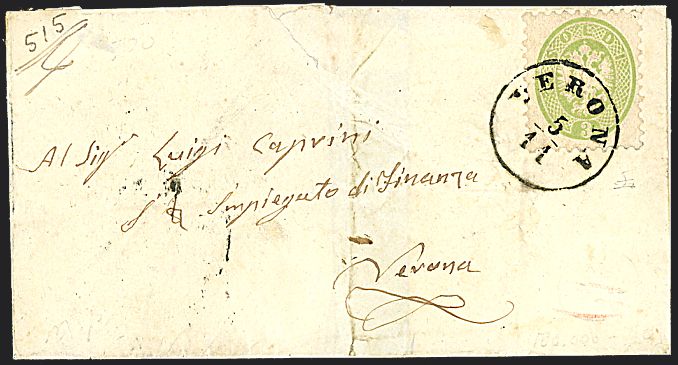 515
VERONA
5
11
3
Al Sigr Luigi Caprini
Impiegato di Finanza
Verona